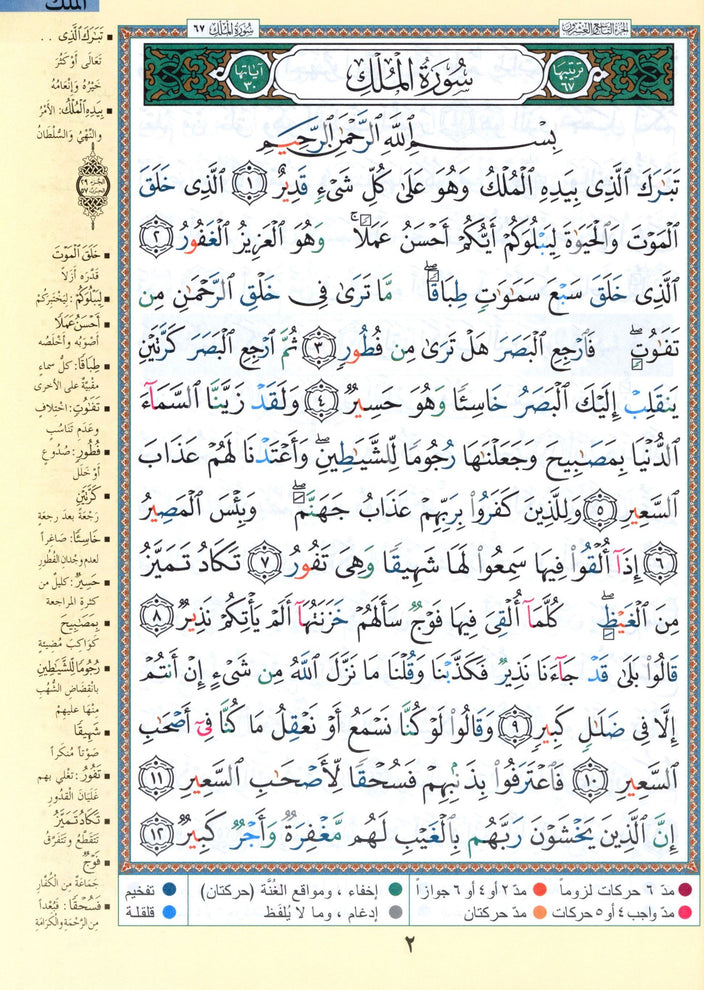 الملك
سُورَةُ المُلْكِ ٦٧
الجزء التاسع والعشرون
ترتيبها ٦٧
سُورَةُ المُلْكِ
آياتها ٣٠
بِسْمِ ٱللَّهِ ٱلرَّحْمَٰنِ ٱلرَّحِيمِ
تَبَٰرَكَ ٱلَّذِى بِيَدِهِ ٱلْمُلْكُ وَهُوَ عَلَىٰ كُلِّ شَىْءٍ قَدِيرٌ ١ ٱلَّذِى خَلَقَ
ٱلْمَوْتَ وَٱلْحَيَوٰةَ لِيَبْلُوَكُمْ أَيُّكُمْ أَحْسَنُ عَمَلًا ۚ وَهُوَ ٱلْعَزِيزُ ٱلْغَفُورُ ٢
ٱلَّذِى خَلَقَ سَبْعَ سَمَٰوَٰتٍ طِبَاقًا ۖ مَّا تَرَىٰ فِى خَلْقِ ٱلرَّحْمَٰنِ مِن
تَفَٰوُتٍ ۖ فَٱرْجِعِ ٱلْبَصَرَ هَلْ تَرَىٰ مِن فُطُورٍ ٣ ثُمَّ ٱرْجِعِ ٱلْبَصَرَ كَرَّتَيْنِ
يَنقَلِبْ إِلَيْكَ ٱلْبَصَرُ خَاسِئًا وَهُوَ حَسِيرٌ ٤ وَلَقَدْ زَيَّنَّا ٱلسَّمَآءَ
ٱلدُّنْيَا بِمَصَٰبِيحَ وَجَعَلْنَٰهَا رُجُومًا لِّلشَّيَٰطِينِ ۖ وَأَعْتَدْنَا لَهُمْ عَذَابَ
ٱلسَّعِيرِ ٥ وَلِلَّذِينَ كَفَرُوا۟ بِرَبِّهِمْ عَذَابُ جَهَنَّمَ ۖ وَبِئْسَ ٱلْمَصِيرُ
٦ إِذَآ أُلْقُوا۟ فِيهَا سَمِعُوا۟ لَهَا شَهِيقًا وَهِىَ تَفُورُ ٧ تَكَادُ تَمَيَّزُ
مِنَ ٱلْغَيْظِ ۖ كُلَّمَآ أُلْقِىَ فِيهَا فَوْجٌ سَأَلَهُمْ خَزَنَتُهَآ أَلَمْ يَأْتِكُمْ نَذِيرٌ ٨
قَالُوا۟ بَلَىٰ قَدْ جَآءَنَا نَذِيرٌ فَكَذَّبْنَا وَقُلْنَا مَا نَزَّلَ ٱللَّهُ مِن شَىْءٍ إِنْ أَنتُمْ
إِلَّا فِى ضَلَٰلٍ كَبِيرٍ ٩ وَقَالُوا۟ لَوْ كُنَّا نَسْمَعُ أَوْ نَعْقِلُ مَا كُنَّا فِىٓ أَصْحَٰبِ
ٱلسَّعِيرِ ١٠ فَٱعْتَرَفُوا۟ بِذَنۢبِهِمْ فَسُحْقًا لِّأَصْحَٰبِ ٱلسَّعِيرِ ١١
إِنَّ ٱلَّذِينَ يَخْشَوْنَ رَبَّهُم بِٱلْغَيْبِ لَهُم مَّغْفِرَةٌ وَأَجْرٌ كَبِيرٌ ١٢
تَبَٰرَكَ ٱلَّذِى ..
تَعَالَى أَوْ كَثُرَ
خَيْرُهُ وَإِنْعَامُهُ
بِيَدِهِ ٱلْمُلْكُ: الأَمْرُ
والنَّهْيُ وَالسُّلْطَانُ
الجزء ٢٩
الحزب ٥٧
خَلَقَ ٱلْمَوْتَ
قَدَّرَهُ أزلاً
لِيَبْلُوَكُمْ: لِيَخْتَبِرَكُمْ
أَحْسَنُ عَمَلًا
أَصْوَبُه وأخْلَصُه
طِبَاقًا: كلُّ سماءٍ
مقْبِيَّةٌ على الأخرى
تَفَٰوُتٍ: اختلافٍ
وعَدَمِ تَنَاسُبٍ
فُطُورٍ: صُدُوعٍ
أو خَلَلٍ
كَرَّتَيْنِ
رَجْعَةً بعدَ رجعةٍ
خَاسِئًا: صَاغراً
لعدم وجْدان الفُطُورِ
حَسِيرٌ: كليلٌ من
كثرة المراجعة
بِمَصَٰبِيحَ
كَوَاكِبَ مُضيئةٍ
رُجُومًا لِّلشَّيَٰطِينِ
بانْقِضَاضِ الشُّهُبِ
مِنْهَا عليهِمْ
شَهِيقًا
صَوْتاً مُنكَراً
تَفُورُ: تَغْلِي بهم
غَلَيَانَ القُدُورِ
تَكَادُ تَمَيَّزُ
تَتَقَطَّعُ وتَتَفَرَّقُ
فَوْجٌ
جَمَاعَةٌ مِنَ الكُفَّارِ
فَسُحْقًا: فَبُعْداً
مِنَ الرَّحْمَةِ والْكَرَامَةِ
مدّ ٦ حركات لزوماً مدّ ٢ أو ٤ أو ٦ جوازاً إخفاء ، ومواقع الغُنَّة (حركتان) تفخيم
مدّ واجب ٤ أو ٥ حركات مدّ حركتان إدغام ، وما لا يُلفَظ قلقلة
٢